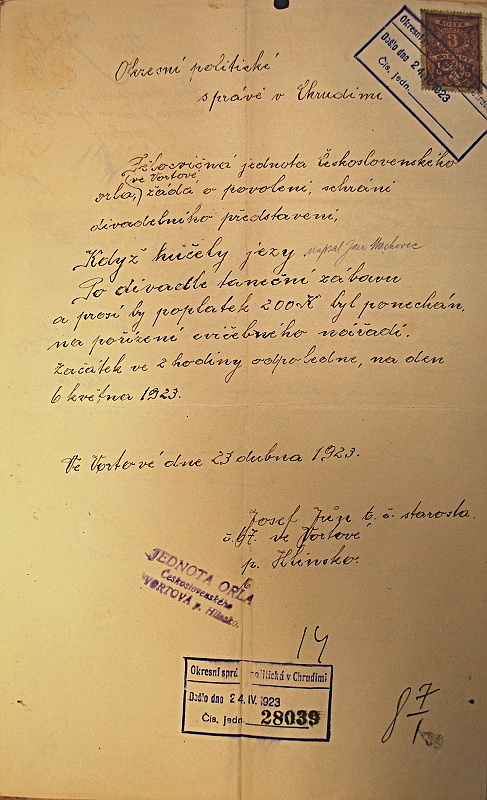 Okresní politické
správě v Chrudimi
Okresní
Došlo dne 24. IV. 1923
Čís. jedn.
KOLEK
3
Tělocvičná jednota Československého
(ve Vortové
orla,) žádá o povolení, sehrání
divadelního představení,
Když hučely jezy napsal Jan Machovec
Po divadle taneční zábavu
a prosí by poplatek 200 Kč byl ponechán,
na pořízení cvičebného nářadí.
Začátek ve 2 hodiny odpoledne, na den
6 května 1923.
Ve Vortové dne 23 dubna 1923.
Josef t. č. starosta
č. 67. ve Vortové
p. Hlinsko.
JEDNOTA ORLA
Československého
VORTOVÁ p. Hlinsko.
14
Okresní správa politická v Chrudimi
Došlo dne 24. IV. 1923
Čís. jedn. 28039